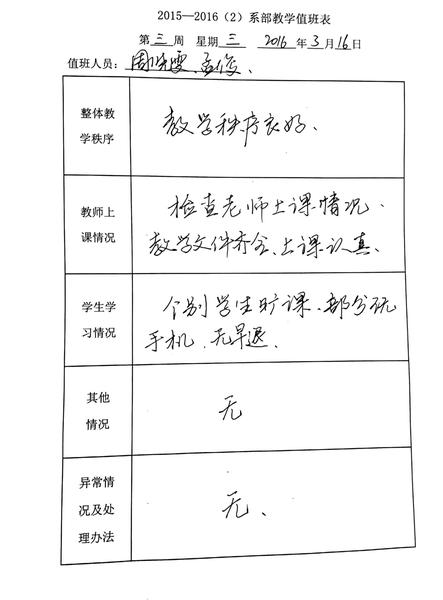 2015—2016（2）系部教学值班表
第 三 周 星期 三 2016 年 3 月 16 日
值班人员： 周 雯、孟俊、
整体教
学秩序
教学秩序良好、
教师上
课情况
检查老师上课情况、
教学文件齐全、上课认真、
学生学
习情况
个别学生旷课、部分玩
手机、无早退、
其他
情况
无
异常情
况及处
理办法
无、